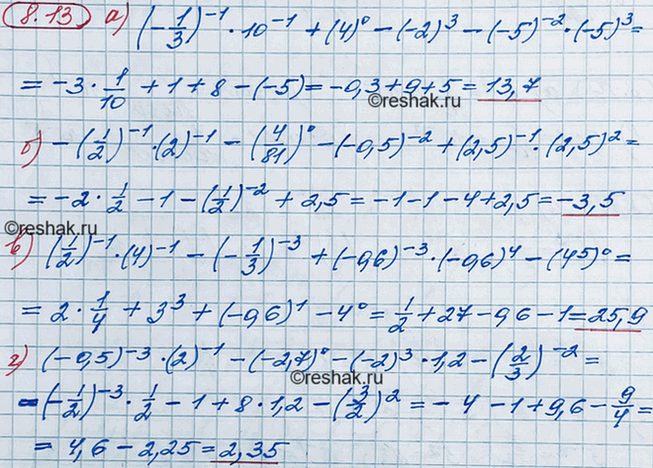 8.13 а) (-1/3)^-1 · 10^-1 + (4)^0 - (-2)^3 - (-5)^-2 · (-5)^3 =
= -3 · 1/10 + 1 + 8 - (-5) = -0,3 + 9 + 5 = 13,7
©reshak.ru
б) -(1/2)^-1 · (2)^-1 - (4/81)^0 - (-0,5)^-2 + (2,5)^-1 · (2,5)^2 =
= -2 · 1/2 - 1 - (1/2)^-2 + 2,5 = -1 - 1 - 4 + 2,5 = -3,5
©reshak.ru
©reshak.ru
в) (1/2)^-1 · (4)^-1 - (-1/3)^-3 + (-0,6)^-3 · (-0,6)^4 - (4^5)^0 =
= 2 · 1/4 + 3^3 + (-0,6)^1 - 4^0 = 1/2 + 27 - 0,6 - 1 = 25,9
г) (-0,5)^-3 · (2)^-1 - (-2,7)^0 - (-2)^3 · 1,2 - (2/3)^-2 =
©reshak.ru
= (-1/2)^-3 · 1/2 - 1 + 8 · 1,2 - (3/2)^2 = -4 - 1 + 9,6 - 9/4 =
= 4,6 - 2,25 = 2,35